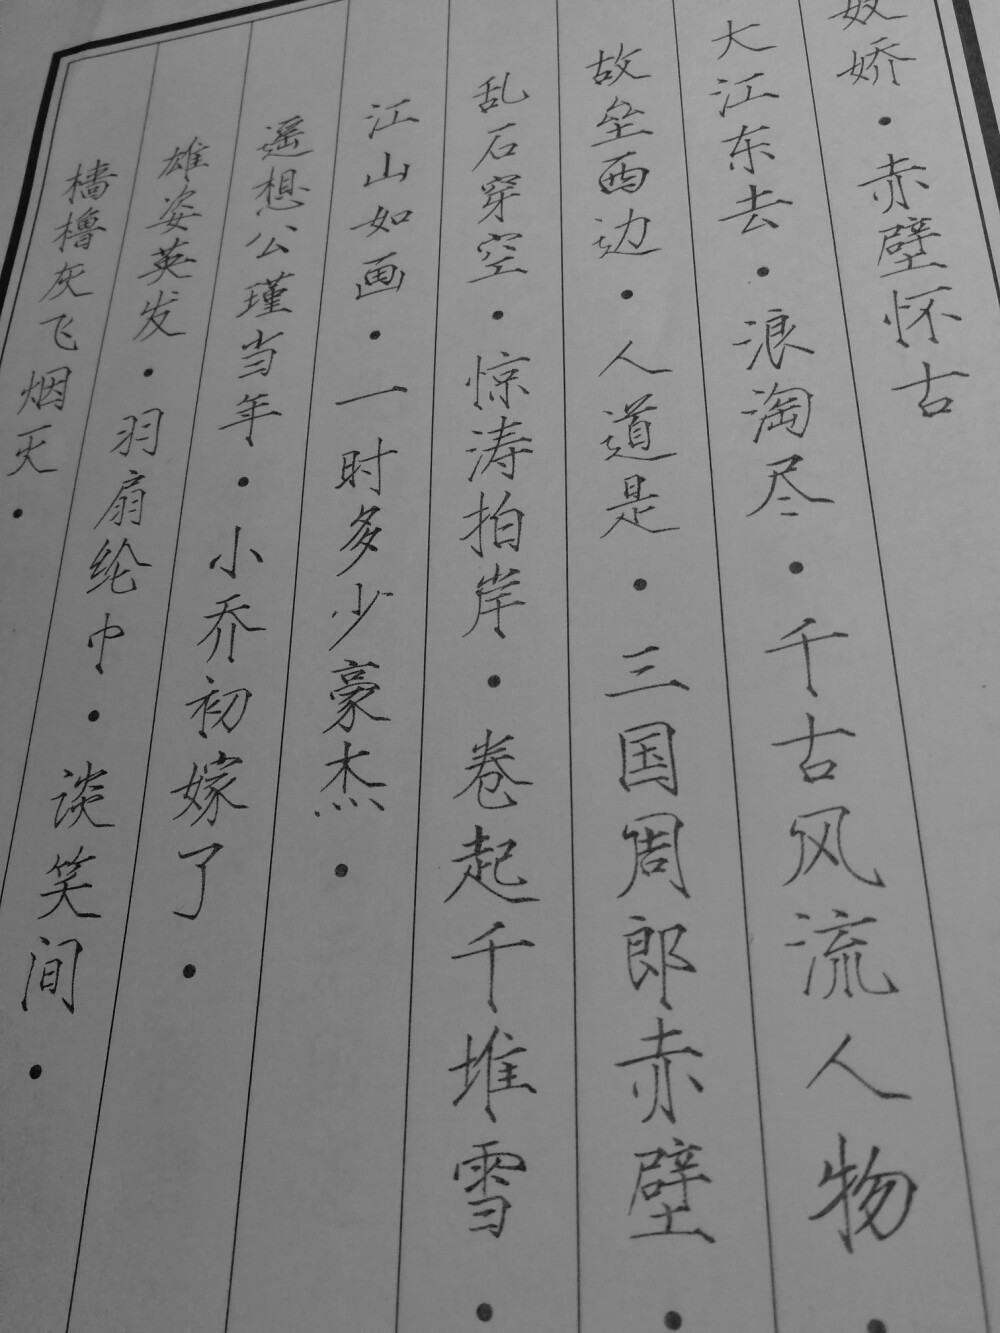 奴娇·赤壁怀古
大江东去·浪淘尽·千古风流人物·
故垒西边·人道是·三国周郎赤壁·
乱石穿空·惊涛拍岸·卷起千堆雪·
江山如画·一时多少豪杰·
遥想公瑾当年·小乔初嫁了·
雄姿英发·羽扇纶巾·谈笑间·
樯橹灰飞烟灭·